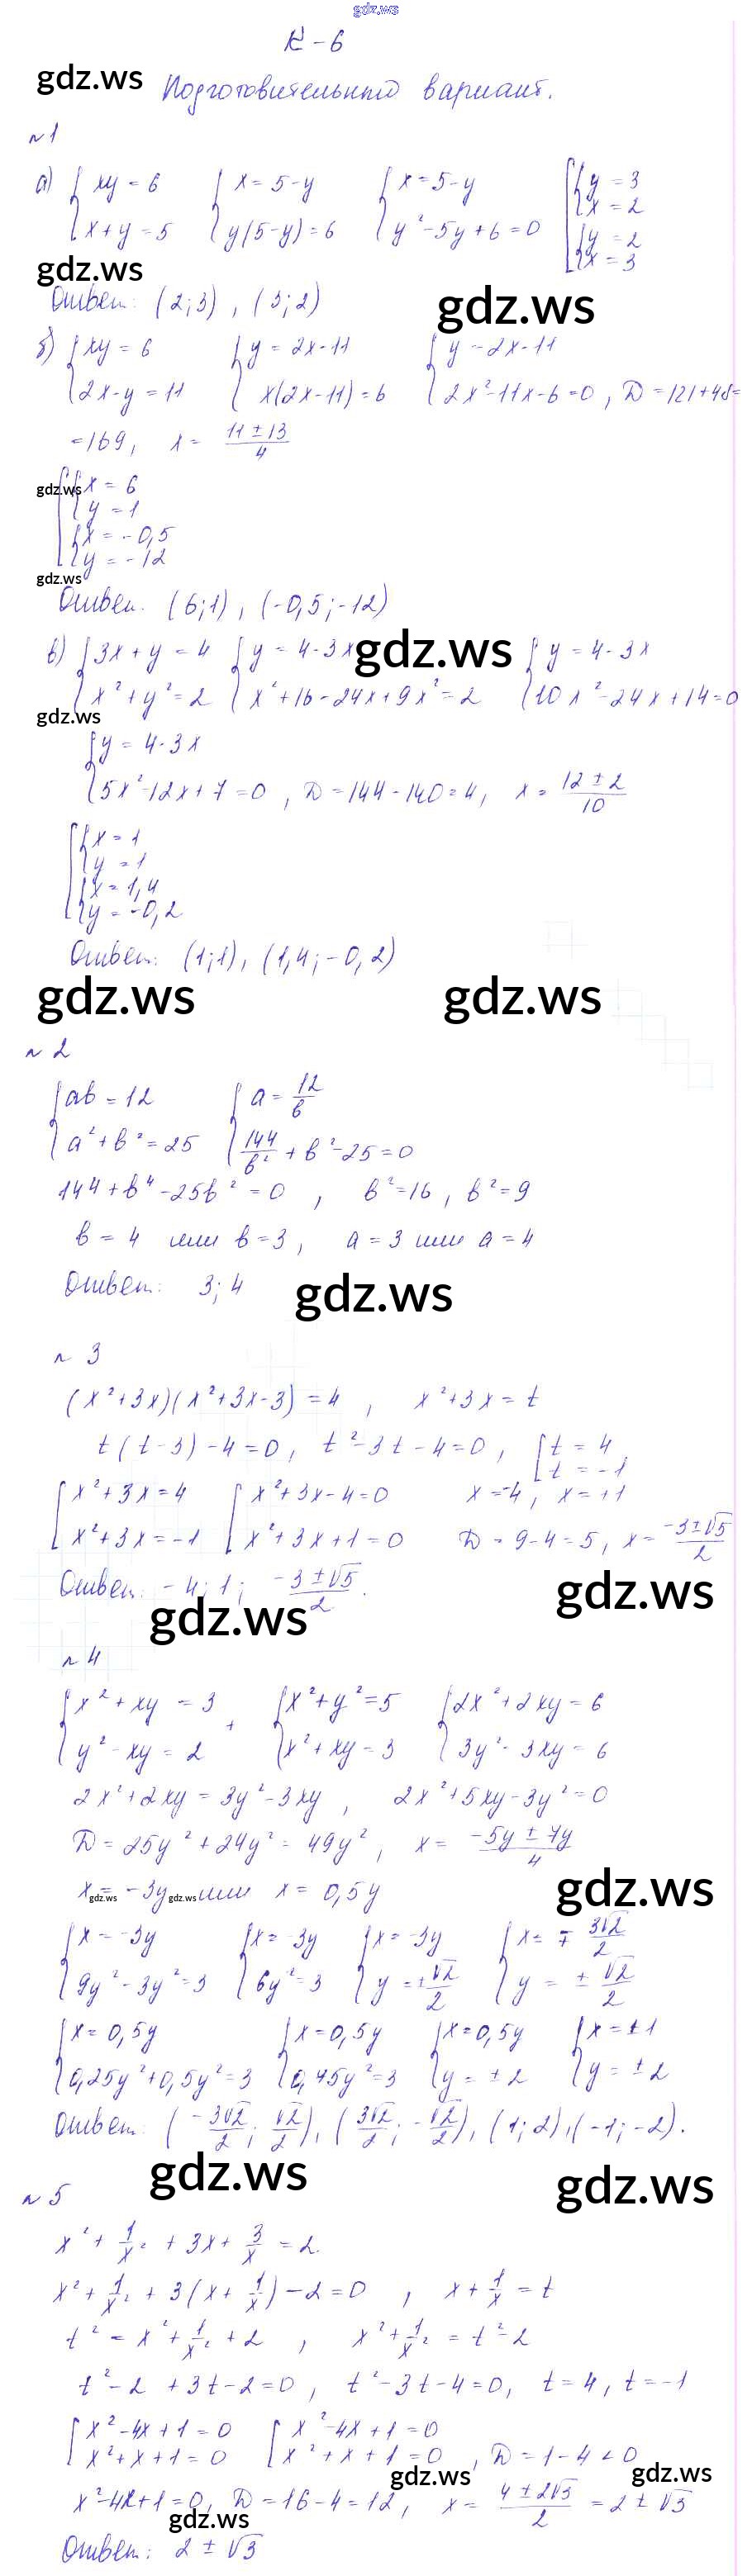 gdz.ws
К-6
gdz.ws
Подготовительный вариант.
№1
а) { xy = 6 { x = 5-y { x = 5-y [ { y = 3
x+y = 5 y(5-y) = 6 y²-5y+6 = 0 x = 2
{ y = 2
x = 3
gdz.ws
Ответ: (2;3), (3;2)
gdz.ws
б) { xy = 6 { y = 2x-11 { y = 2x-11
2x-y = 11 x(2x-11) = 6 2x²-11x-6 = 0, D = 121+48=
=169, x = (11±13)/4
gdz.ws
[ { x = 6
y = 1
{ x = -0,5
y = -12
gdz.ws
Ответ. (6;1), (-0,5;-12)
в) { 3x+y = 4 { y = 4-3x { y = 4-3x
gdz.ws
x²+y² = 2 x²+16-24x+9x² = 2 10x²-24x+14 = 0
gdz.ws
{ y = 4-3x
5x²-12x+7 = 0, D = 144-140 = 4, x = (12±2)/10
[ { x = 1
y = 1
{ x = 1,4
y = -0,2
Ответ: (1;1), (1,4;-0,2)
gdz.ws gdz.ws
№2
{ ab = 12 { a = 12/b
a²+b² = 25 144/b² + b²-25 = 0
144+b⁴-25b² = 0, b² = 16, b² = 9
b = 4 или b = 3, a = 3 или a = 4
Ответ: 3; 4
gdz.ws
№3
(x²+3x)(x²+3x-3) = 4, x²+3x = t
t(t-3)-4 = 0, t²-3t-4 = 0, [ t = 4
t = -1
[ x²+3x = 4 [ x²+3x-4 = 0 x = -4, x = +1
x²+3x = -1 x²+3x+1 = 0 D = 9-4 = 5, x = (-3±√5)/2
Ответ: -4; 1; (-3±√5)/2.
gdz.ws
gdz.ws
№4
{ x²+xy = 3 + { x²+y² = 5 { 2x²+2xy = 6
y²-xy = 2 x²+xy = 3 3y²-3xy = 6
2x²+2xy = 3y²-3xy, 2x²+5xy-3y² = 0
D = 25y²+24y² = 49y², x = (-5y±7y)/4
gdz.ws
x = -3y или x = 0,5y
gdz.ws gdz.ws
{ x = -3y { x = -3y { x = -3y { x = ∓3√2/2
9y²-3y² = 3 6y² = 3 y = ±√2/2 y = ±√2/2
{ x = 0,5y { x = 0,5y { x = 0,5y { x = ±1
0,25y²+0,5y² = 3 0,75y² = 3 y = ±2 y = ±2
Ответ: (-3√2/2; √2/2), (3√2/2; -√2/2), (1;2), (-1;-2).
gdz.ws gdz.ws
№5
x² + 1/x² + 3x + 3/x = 2
x² + 1/x² + 3(x + 1/x) - 2 = 0, x + 1/x = t
t² = x² + 1/x² + 2, x² + 1/x² = t²-2
t²-2 + 3t-2 = 0, t²-3t-4 = 0, t = 4, t = -1
[ x²-4x+1 = 0 [ x²-4x+1 = 0
x²+x+1 = 0 x²+x+1 = 0, D = 1-4 < 0
gdz.ws gdz.ws
x²-4x+1 = 0, D = 16-4 = 12, x = (4±2√3)/2 = 2±√3
gdz.ws
Ответ: 2±√3